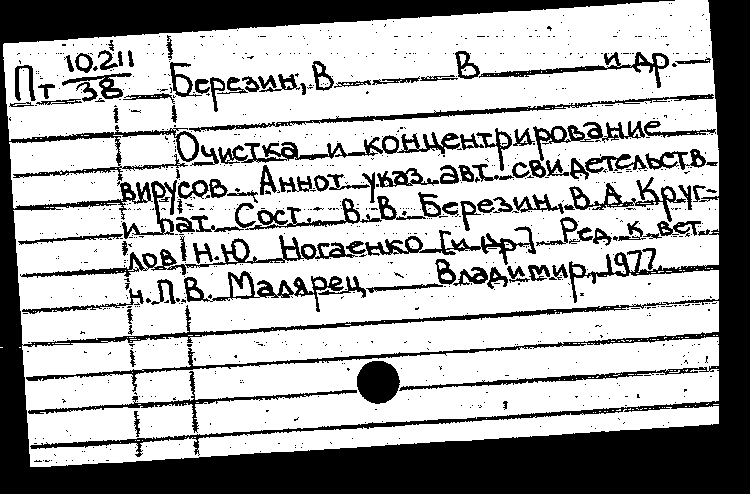 Пт 10.211/38 Березин, В В и др.
Очистка и концентрирование
вирусов. Аннот. указ. авт. свидетельств
и пат. Сост. В.В. Березин, В.А. Круг-
лов, Н.Ю. Ногаенко [и др.] Ред. к. вет.
н. П.В. Малярец. Владимир, 1977.